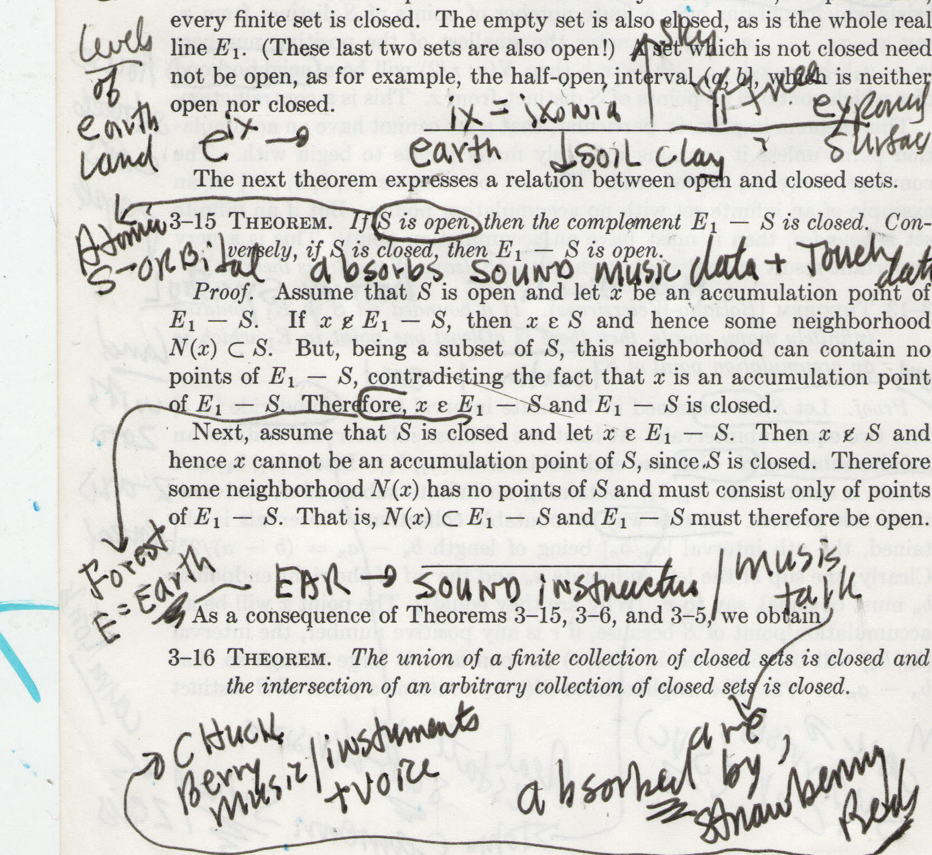 every finite set is closed. The empty set is also closed, as is the whole real
line E₁. (These last two sets are also open!) A set which is not closed need
not be open, as for example, the half-open interval (a, b], which is neither
open nor closed.
Levels
of
earth
land
sky
tree
e ix → — ix = ixonia
earth
soil clay
The next theorem expresses a relation between open and closed sets.
3–15 THEOREM. If S is open, then the complement E₁ − S is closed. Con-
versely, if S is closed, then E₁ − S is open.
Atomic
S → ORBital absorbs SOUND music data + Touch data
Proof. Assume that S is open and let x be an accumulation point of
E₁ − S. If x ∉ E₁ − S, then x ε S and hence some neighborhood
N(x) ⊂ S. But, being a subset of S, this neighborhood can contain no
points of E₁ − S, contradicting the fact that x is an accumulation point
of E₁ − S. Therefore, x ε E₁ − S and E₁ − S is closed.
Next, assume that S is closed and let x ε E₁ − S. Then x ∉ S and
hence x cannot be an accumulation point of S, since S is closed. Therefore
some neighborhood N(x) has no points of S and must consist only of points
of E₁ − S. That is, N(x) ⊂ E₁ − S and E₁ − S must therefore be open.
Forest
E = Earth
— EAR → SOUND
music
talk
As a consequence of Theorems 3–15, 3–6, and 3–5, we obtain
3–16 THEOREM. The union of a finite collection of closed sets is closed and
the intersection of an arbitrary collection of closed sets is closed.
→ Chuck
Berry
music/instuments
+ voice
are
absorbed by
strawberry
Reds